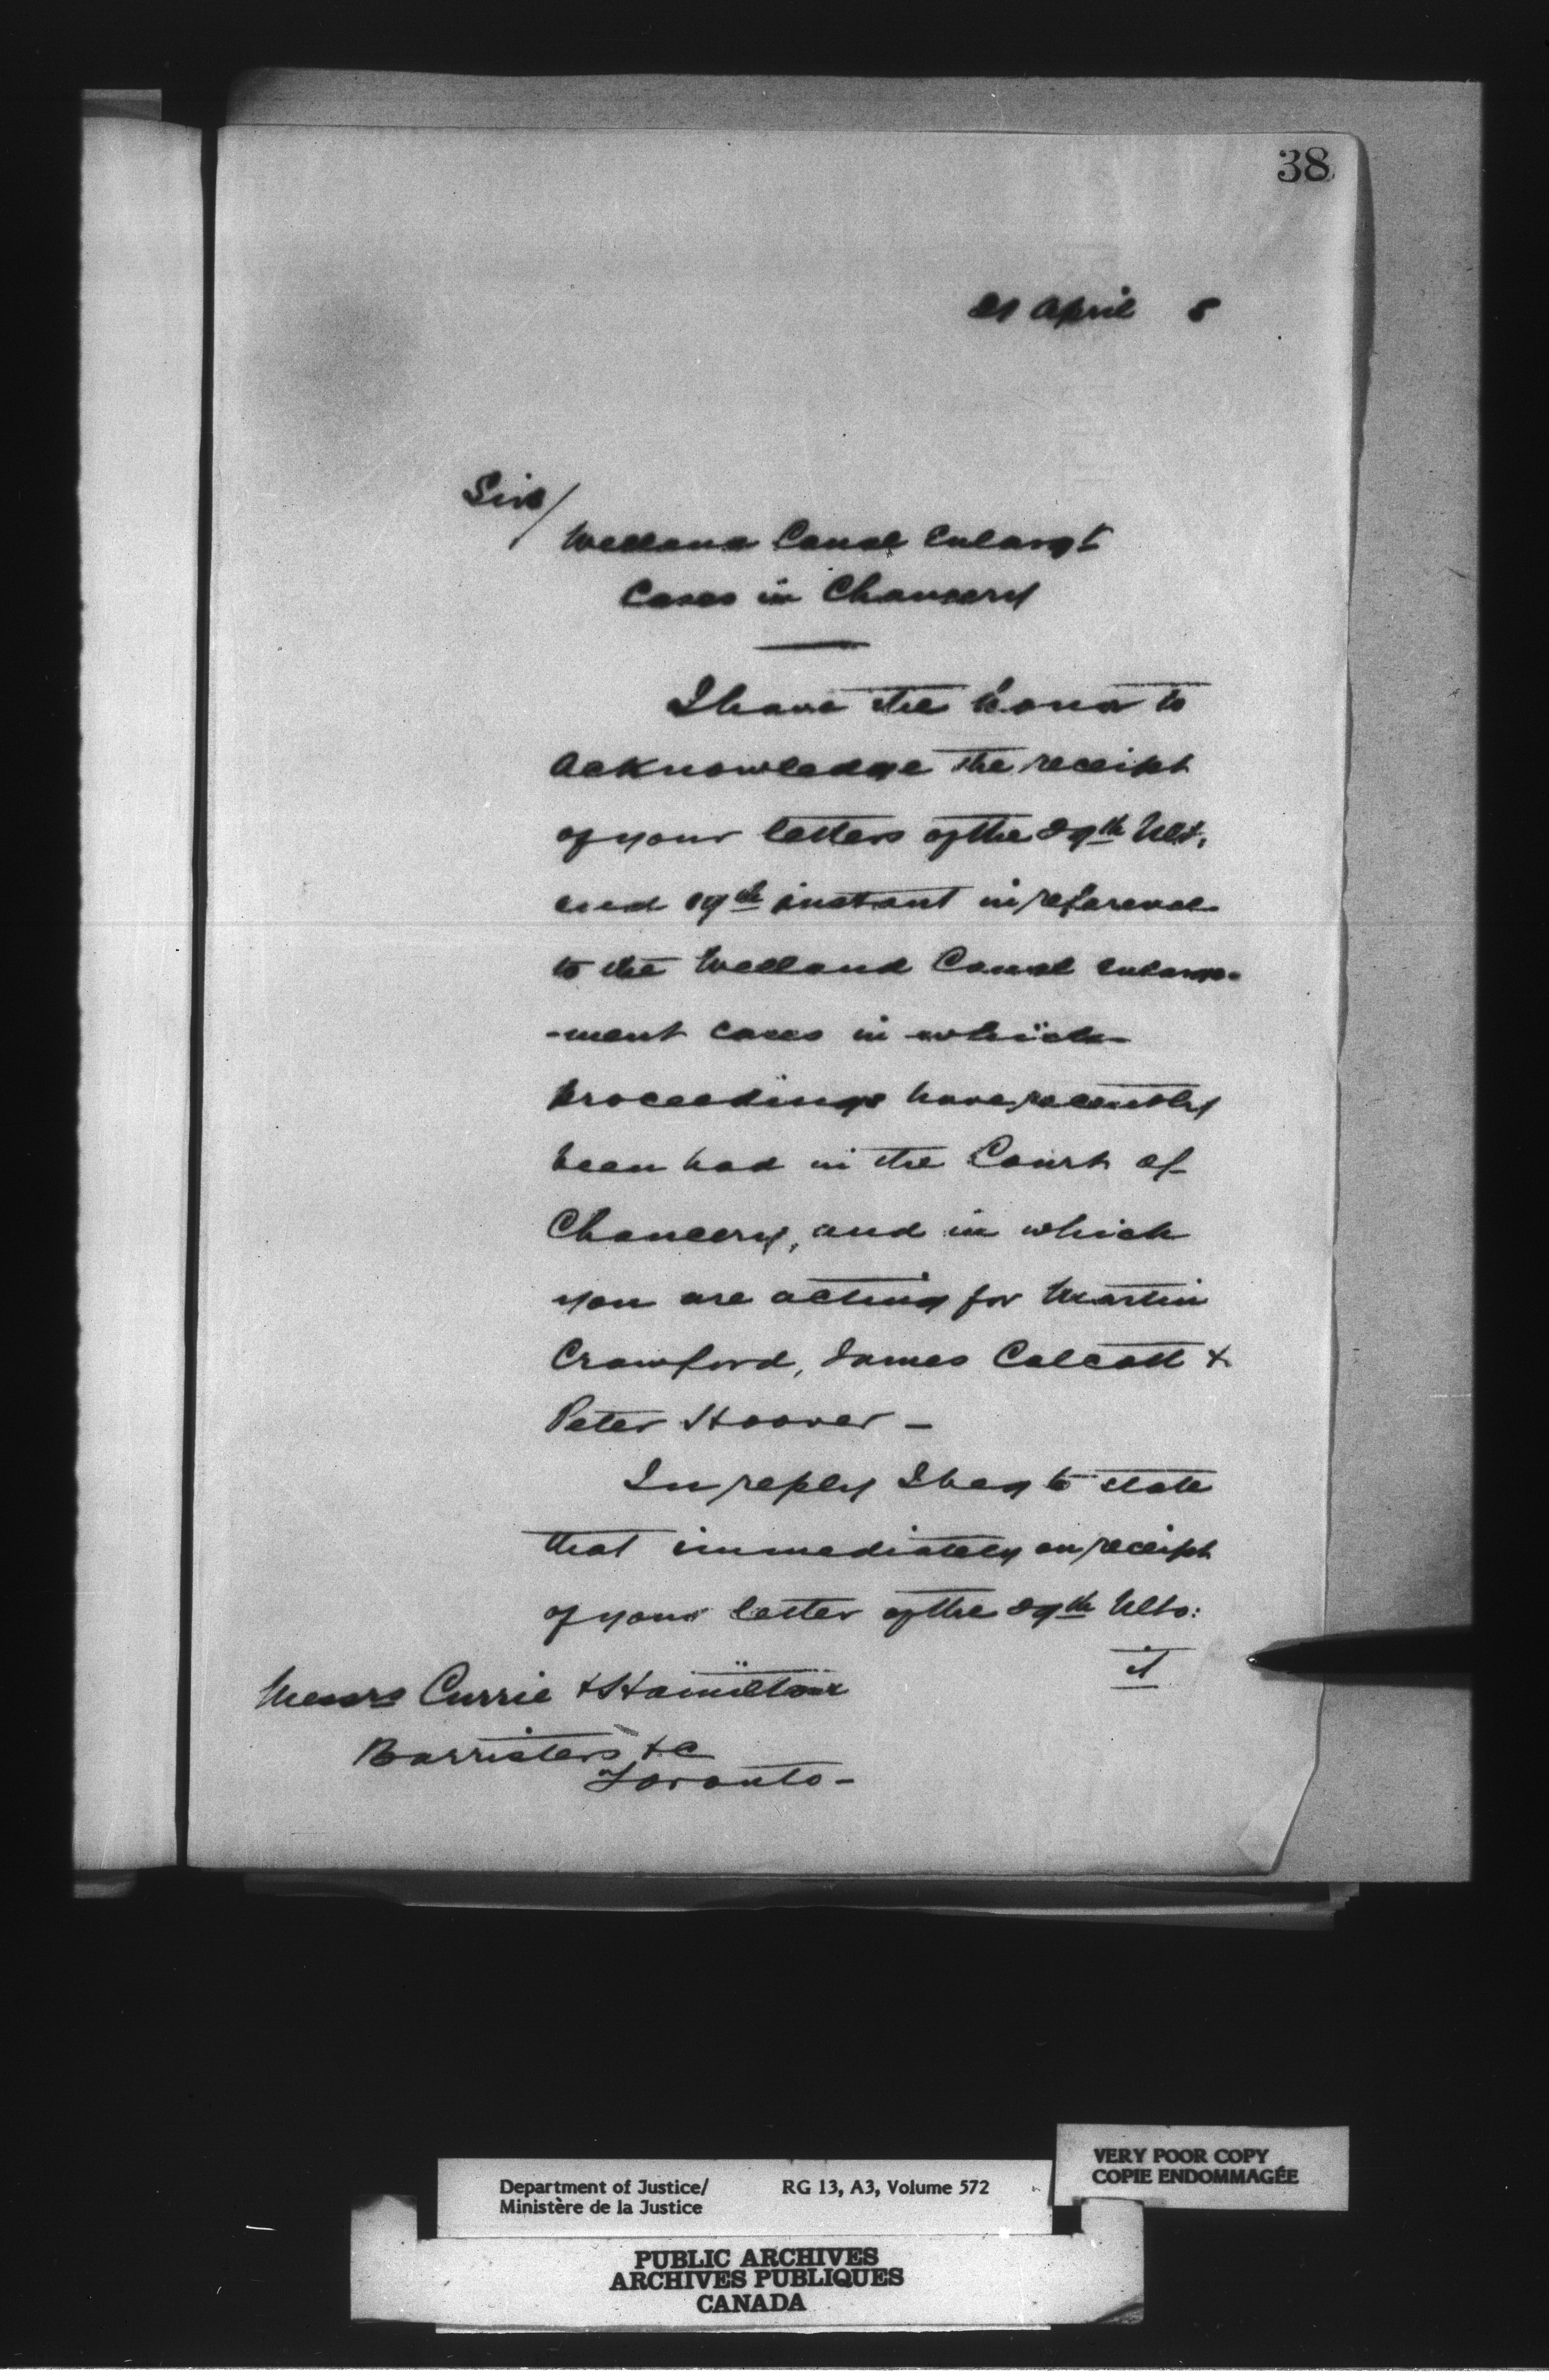 38
21 April 8
Sirs/
Welland Canal Enlargt
Cases in Chancery
I have the honor to
acknowledge the receipt
of your letters of the 29th Ult.
and 19th instant in reference
to the Welland Canal enlarge-
-ment cases in which
proceedings have recently
been had in the Court of
Chancery, and in which
you are acting for Martin
Crawford, James Calcott &
Peter Hoover -
In reply I beg to state
that immediately on receipt
of your letter of the 29th Ulto:
it
Messrs Currie & Hamilton
Barristers &c
Toronto -
Department of Justice/
Ministère de la Justice
RG 13, A3, Volume 572
VERY POOR COPY
COPIE ENDOMMAGÉE
PUBLIC ARCHIVES
ARCHIVES PUBLIQUES
CANADA